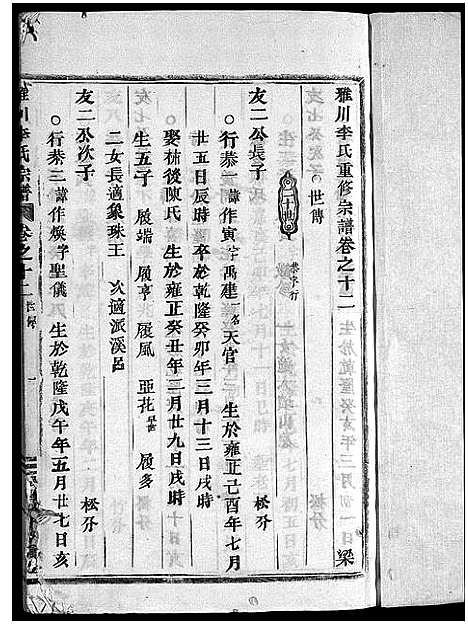 雅川李氏重修宗譜卷之十二
世傳
二十世
恭字行
友二公長子
松分
行恭一諱作寅字禹建一名天官 生於雍正己酉年七月
廿五日辰時 卒於乾隆癸卯年三月十三日戌時
娶林後陳氏 生於雍正癸丑年二月廿九日戌時
生五子 履端 履亨 履風 亞花 履多
二女長適象珠王 次適派溪呂
友二公次子
松分
行恭三諱作煥字聖儀 生於乾隆戊午年五月廿七日亥
雅川李氏宗譜 卷之十二 世傳 一